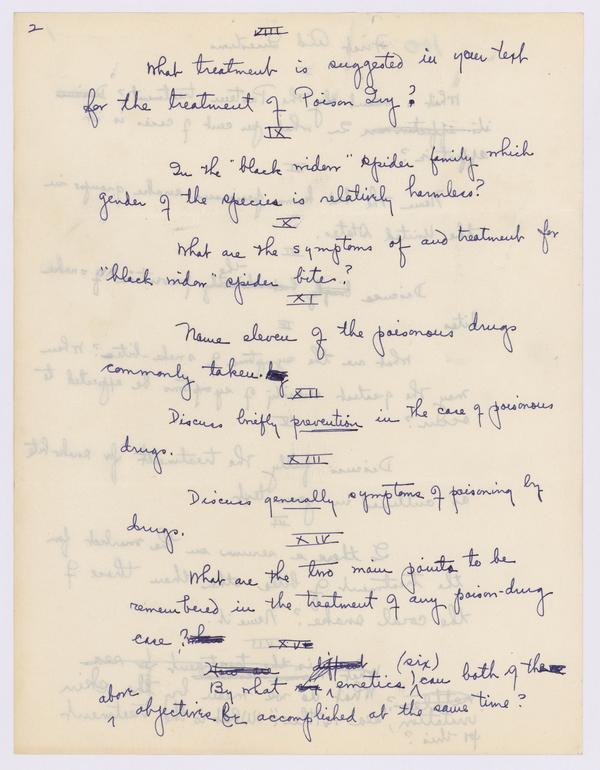 2
VIII
What treatment is suggested in your text
for the treatment of Poison Ivy?
IX
In the "black widow" spider family which
gender of the species is relatively harmless?
X
What are the symptoms of and treatment for
"black widow" spider bites?
XI
Name eleven of the poisonous drugs
commonly taken.
XII
Discuss briefly prevention in the case of poisonous
drugs.
XIII
Discuss generally symptoms of poisoning by
drugs.
XIV
What are the two main points to be
remembered in the treatment of any poison-drug
case?
XV
(six)
By what emetics can both of the
above objectives be accomplished at the same time?